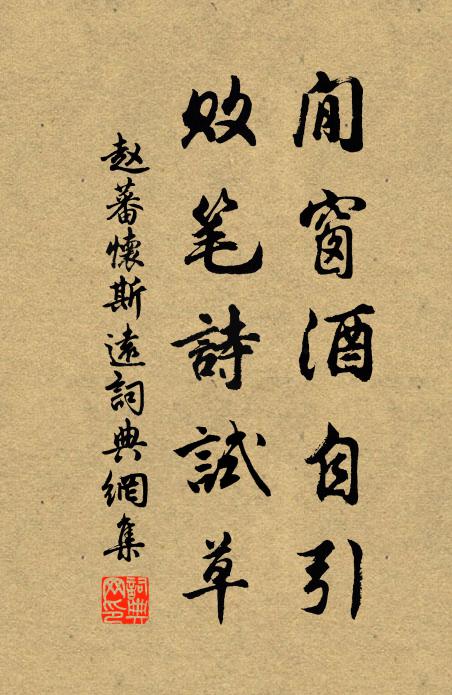 閒窗酒自引
敗笔詩試草
赵蕃懷斯遠詞典網集
詞典网印